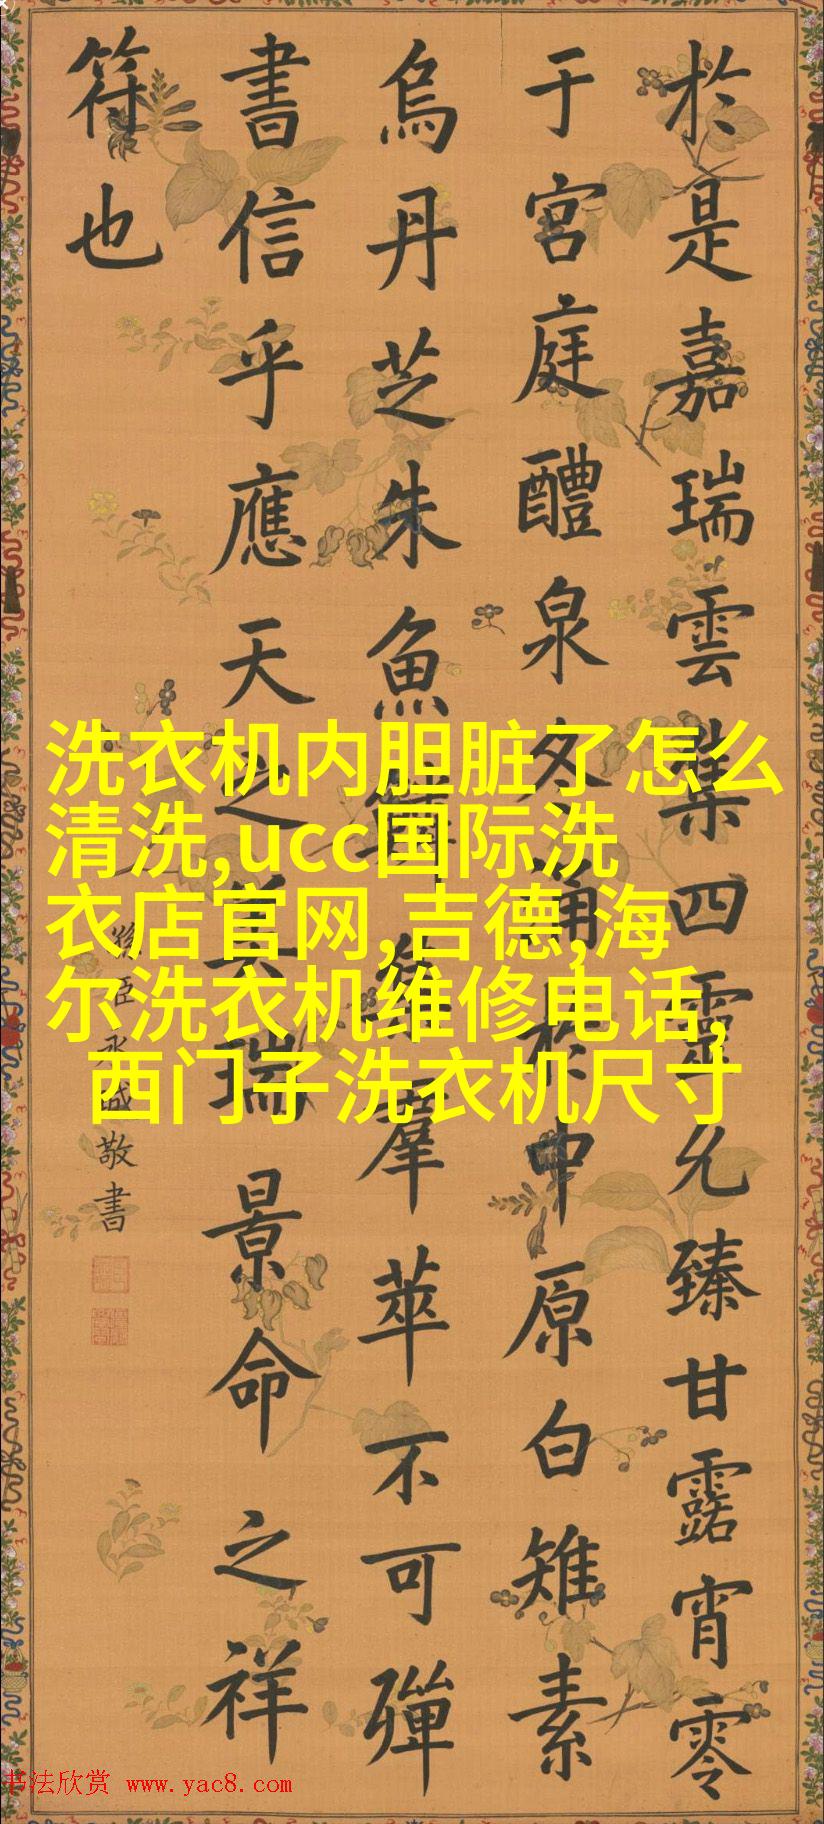 於是嘉瑞雲集四靈允臻甘露宵零
于宮庭醴泉冬涌於中原白雉素
烏丹芝朱魚羣萃不可殫
書信乎應天之美瑞景命之祥
符也
臣永珹敬書
洗衣机内胆脏了怎么
清洗,ucc国际洗
衣店官网,吉德,海
尔洗衣机维修电话,
西门子洗衣机尺寸
书法欣赏 www.yac8.com